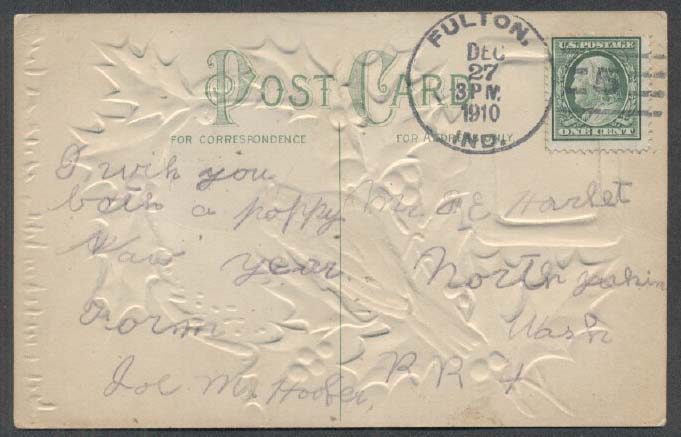 POST CARD
FOR CORRESPONDENCE
FOR ADDRESS ONLY
FULTON.
DEC
27
3 PM
1910
IND.
U.S. POSTAGE
ONE CENT
I wish you
both a hoppy
Naw year
Form
Joe
Mr. F E
North yakim
Wash
RR 4